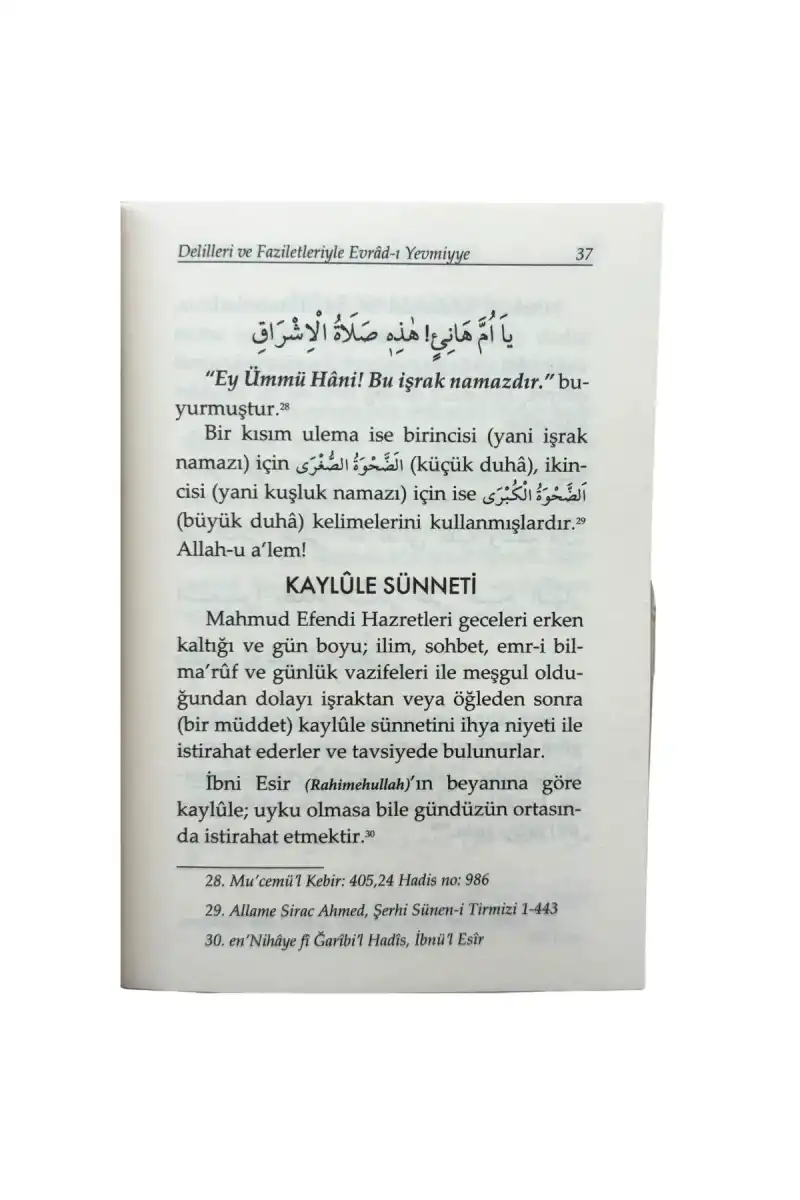 Delilleri ve Faziletleriyle Evrâd-ı Yevmiyye 37
يَا اُمَّ هَانِئٍ! هٰذِهٖ صَلَاةُ الْاِشْرَاقِ
"Ey Ümmü Hâni! Bu işrak namazdır." bu-
yurmuştur.²⁸
Bir kısım ulema ise birincisi (yani işrak
namazı) için اَلضَّحْوَةُ الصُّغْرَى (küçük duhâ), ikin-
cisi (yani kuşluk namazı) için ise اَلضَّحْوَةُ الْكُبْرَى
(büyük duhâ) kelimelerini kullanmışlardır.²⁹
Allah-u a'lem!
KAYLÛLE SÜNNETİ
Mahmud Efendi Hazretleri geceleri erken
kaltığı ve gün boyu; ilim, sohbet, emr-i bil-
ma'rûf ve günlük vazifeleri ile meşgul oldu-
ğundan dolayı işraktan veya öğleden sonra
(bir müddet) kaylûle sünnetini ihya niyeti ile
istirahat ederler ve tavsiyede bulunurlar.
İbni Esir (Rahimehullah)'ın beyanına göre
kaylûle; uyku olmasa bile gündüzün ortasın-
da istirahat etmektir.³⁰
28. Mu'cemü'l Kebir: 405,24 Hadis no: 986
29. Allame Sirac Ahmed, Şerhi Sünen-i Tirmizi 1-443
30. en'Nihâye fî Ğarîbi'l Hadîs, İbnü'l Esîr